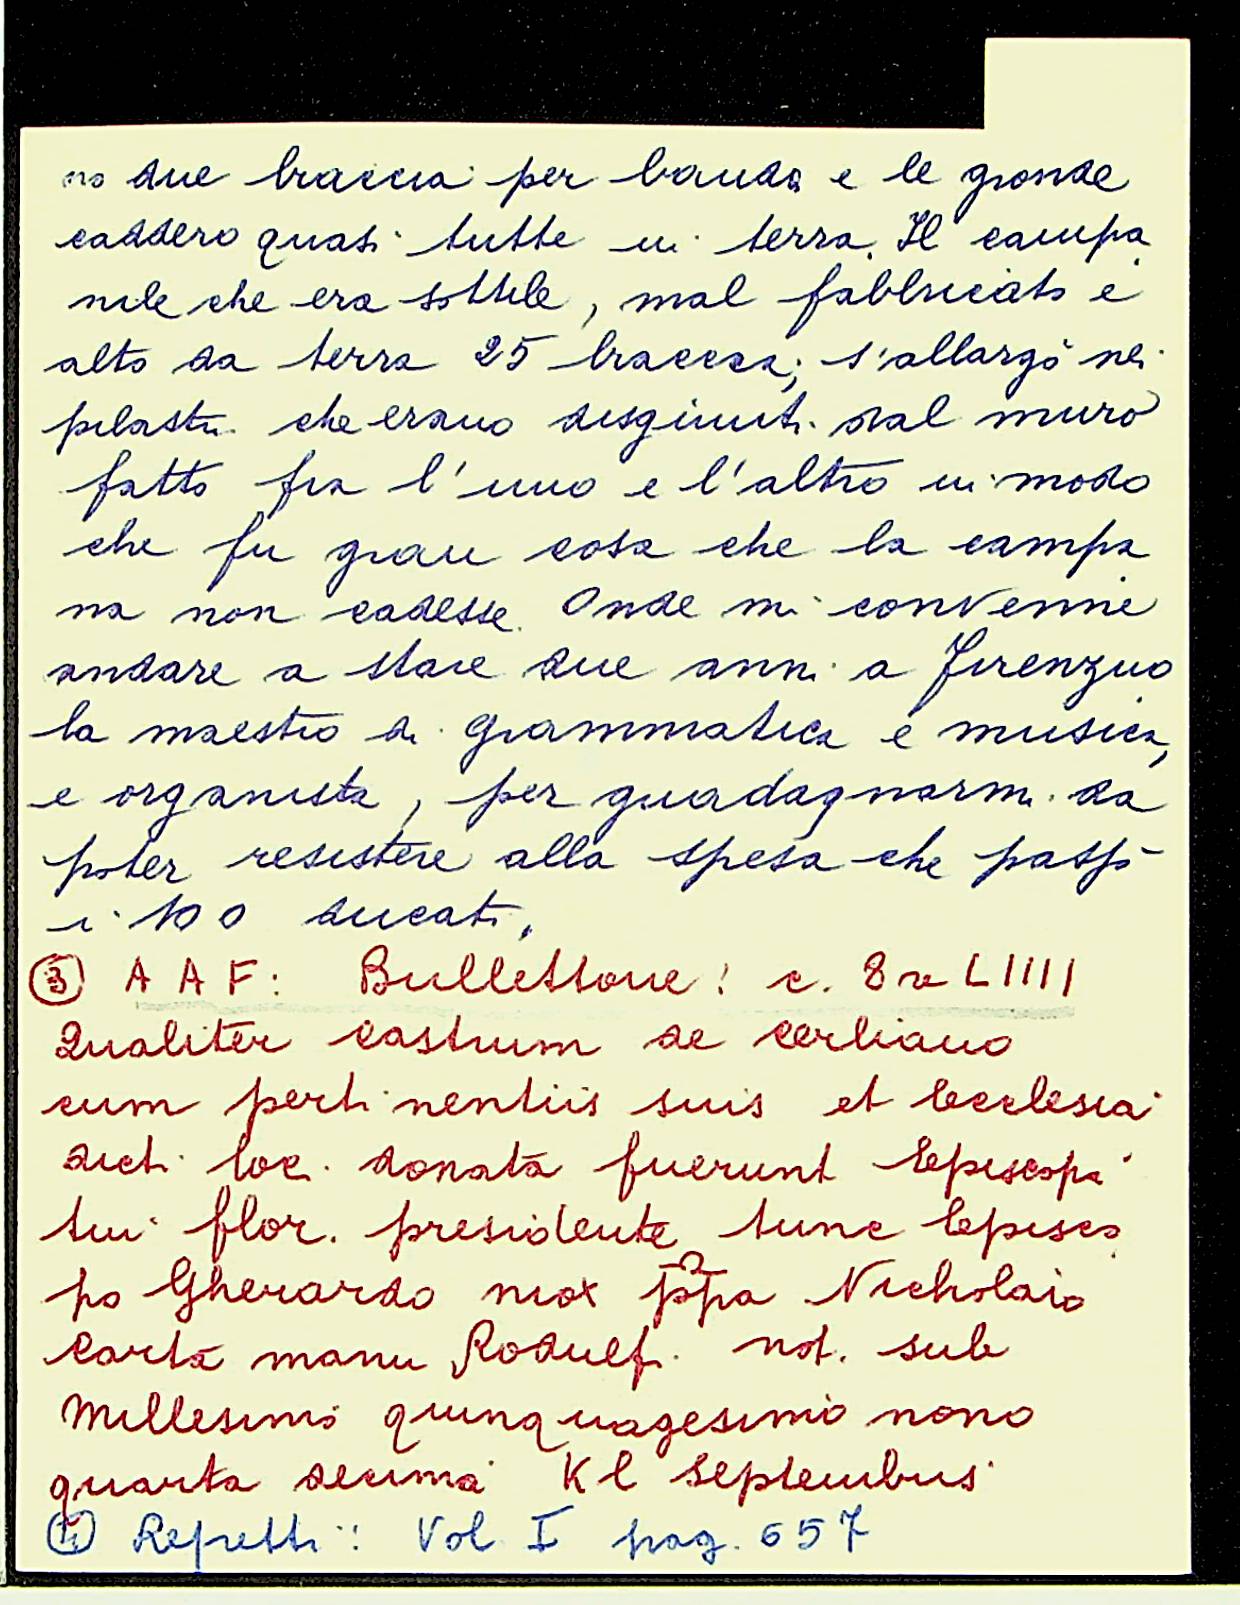 no due braccia per banda e le gronde
caddero quasi tutte in terra. Il campa
nile che era sottile, mal fabbricato e
alto da terra 25 braccia; s'allargò nei
pilastri che erano disgiunti dal muro
fatto fra l'uno e l'altro in modo
che fu gran cosa che la campa
na non cadesse. Onde mi convenne
andare a stare due anni a Firenzuo
la maestro di grammatica e musica,
e organista, per guadagnarmi da
poter resistere alla spesa che passò
i 100 ducati.
③ A A F: Bullettone: c. 8 v LIIII
Qualiter castrum de cerliano
cum pertinentiis suis et Ecclesia
dicti loci donata fuerunt Episcopa
tui flor. presidente tunc Episco
po Gherardo mox ppa Nicholaio
Carta manu Rodulfi not. sub
Millesimo quinquagesimo nono
quarta decima Kl Septembris
④ Repetti: Vol I pag. 657